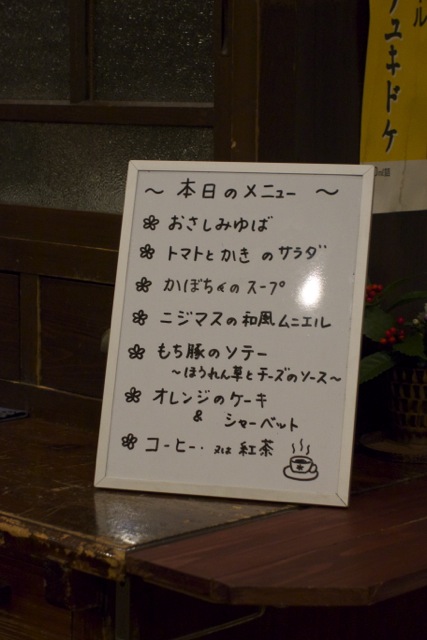 ル
ユキドケ
～ 本日のメニュー ～
おさしみゆば
トマトとかきのサラダ
かぼちゃのスープ
ニジマスの和風ムニエル
もち豚のソテー
～ほうれん草とチーズのソース～
オレンジのケーキ
&
シャーベット
コーヒー・又は紅茶